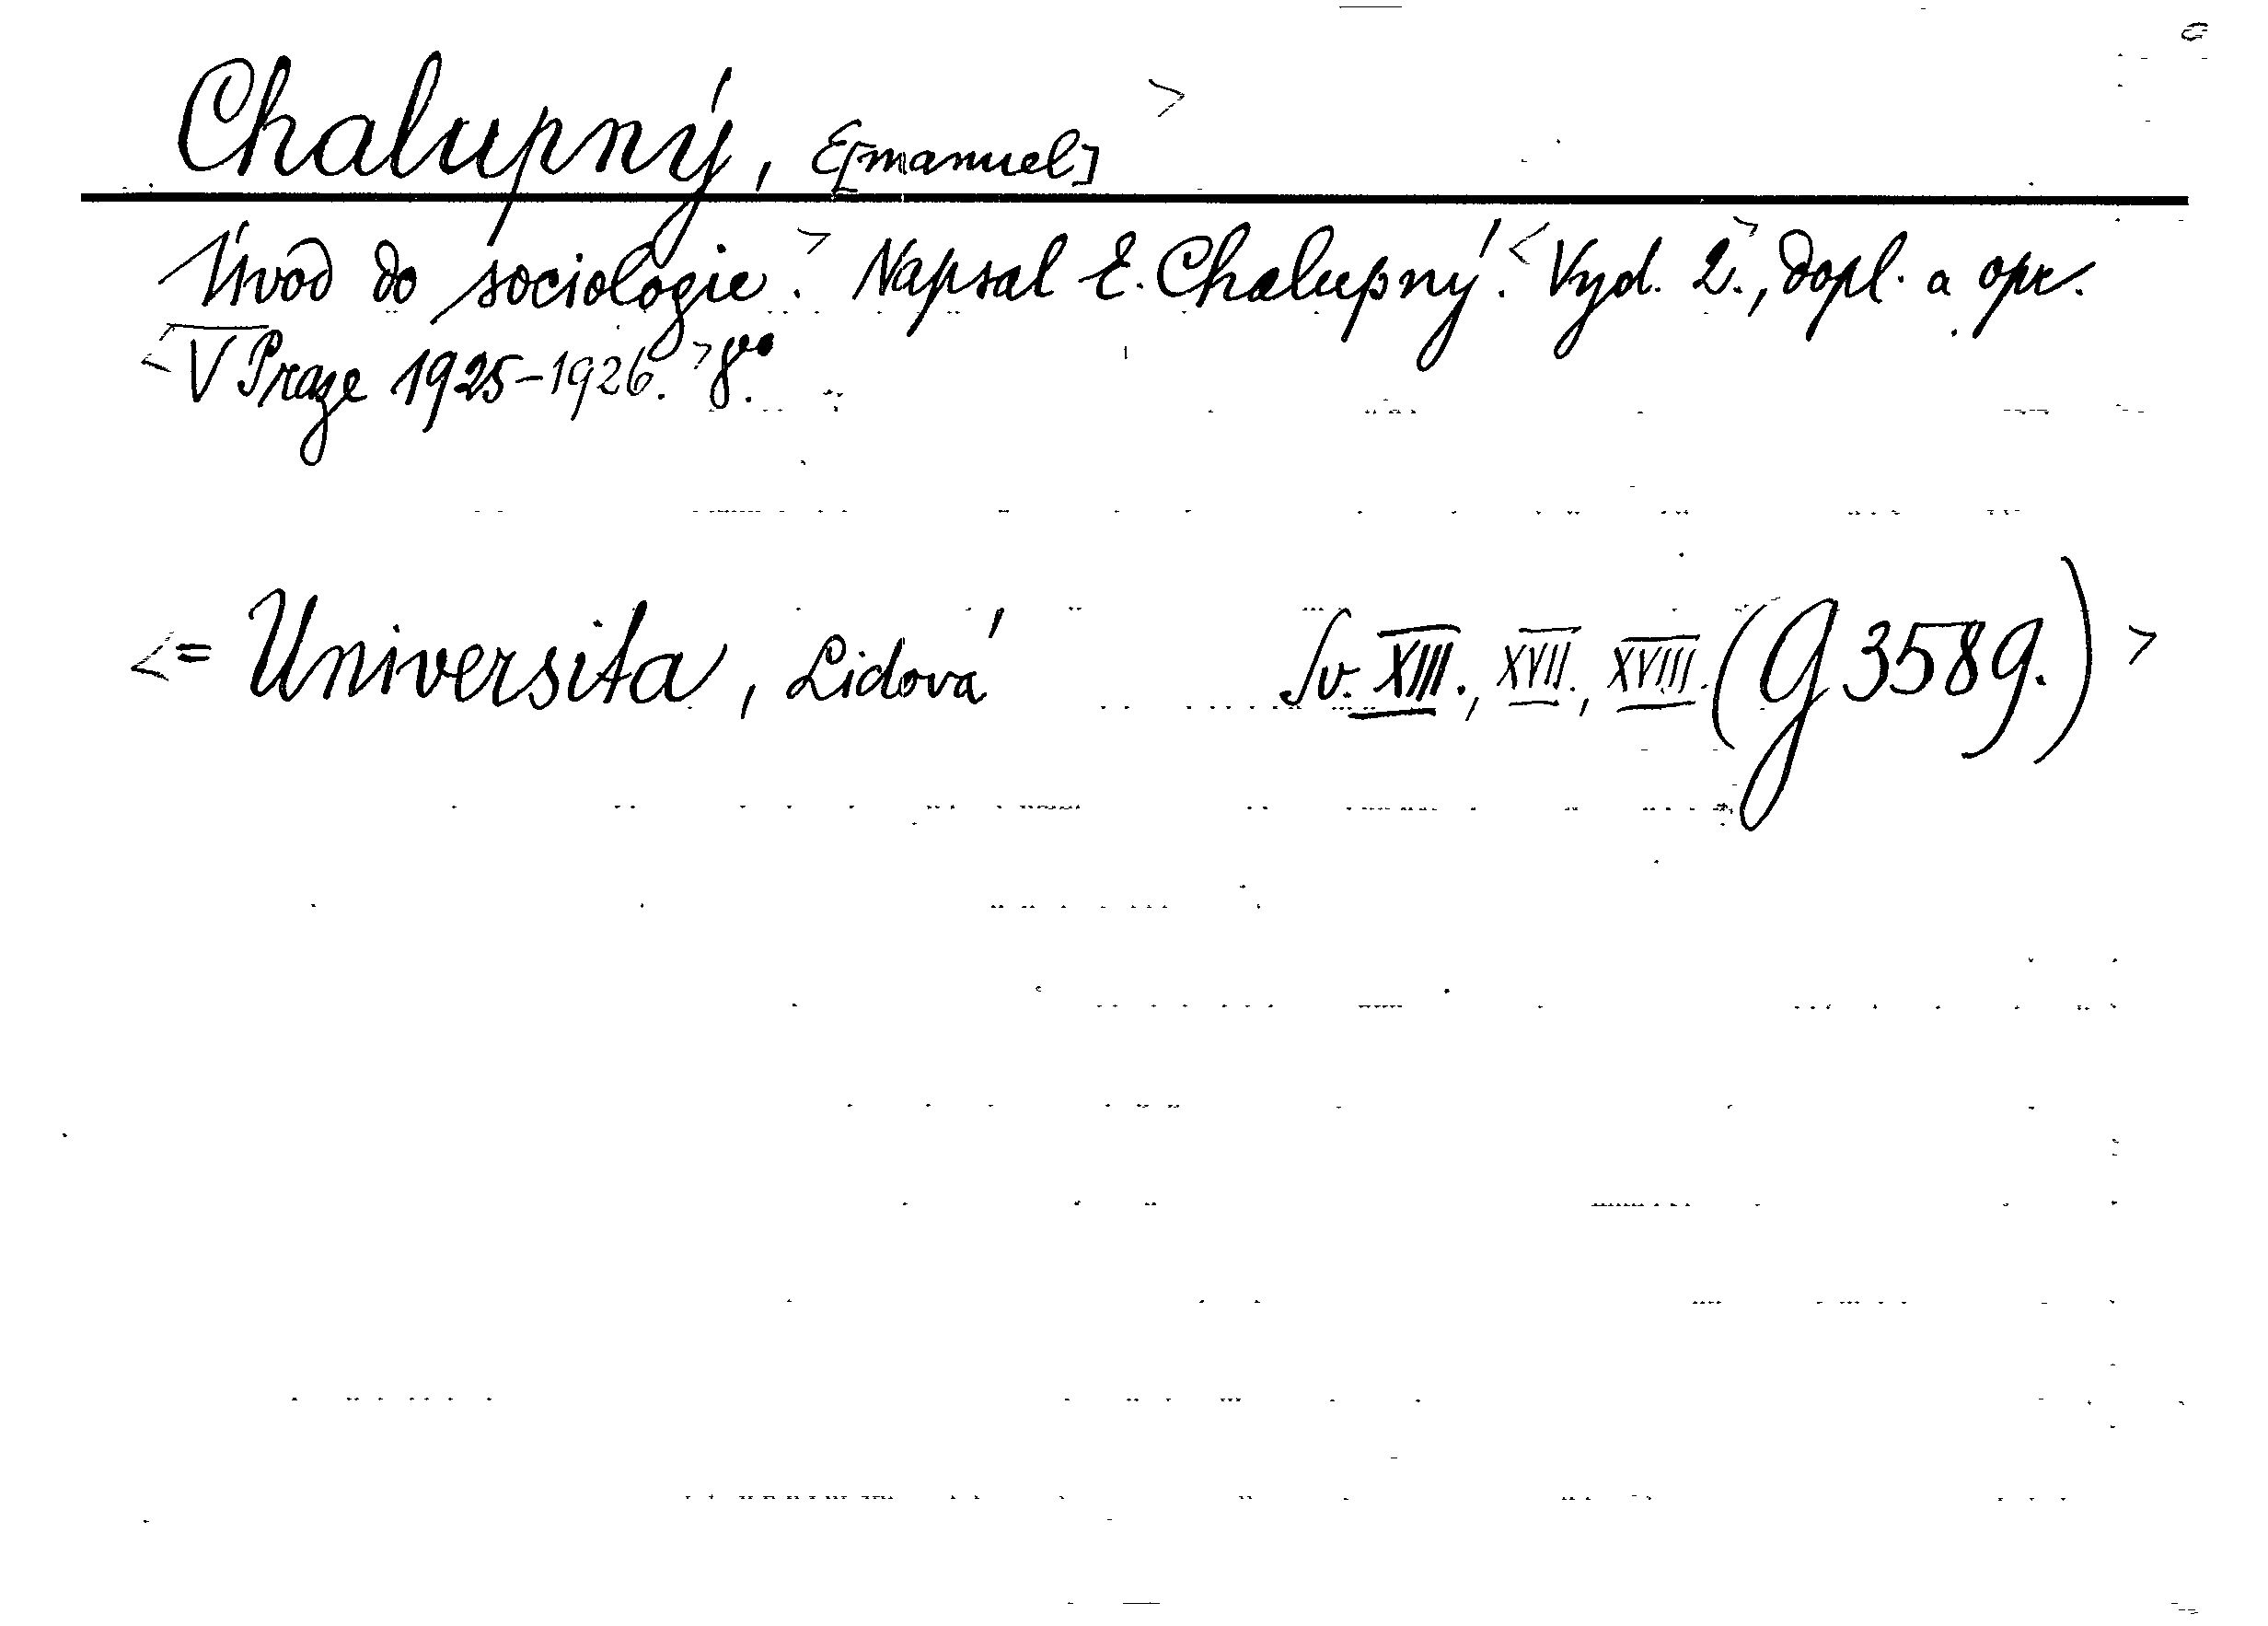 Chalupný, E[manuel] >
Úvod do sociologie. > Napsal E. Chalupný. < Vyd. 2. >, dopl. a opr.
< V Praze 1925-1926. > 8vo.
<= Universita, Lidová Sv. XIII., XVII., XVIII. (G 3589.) >